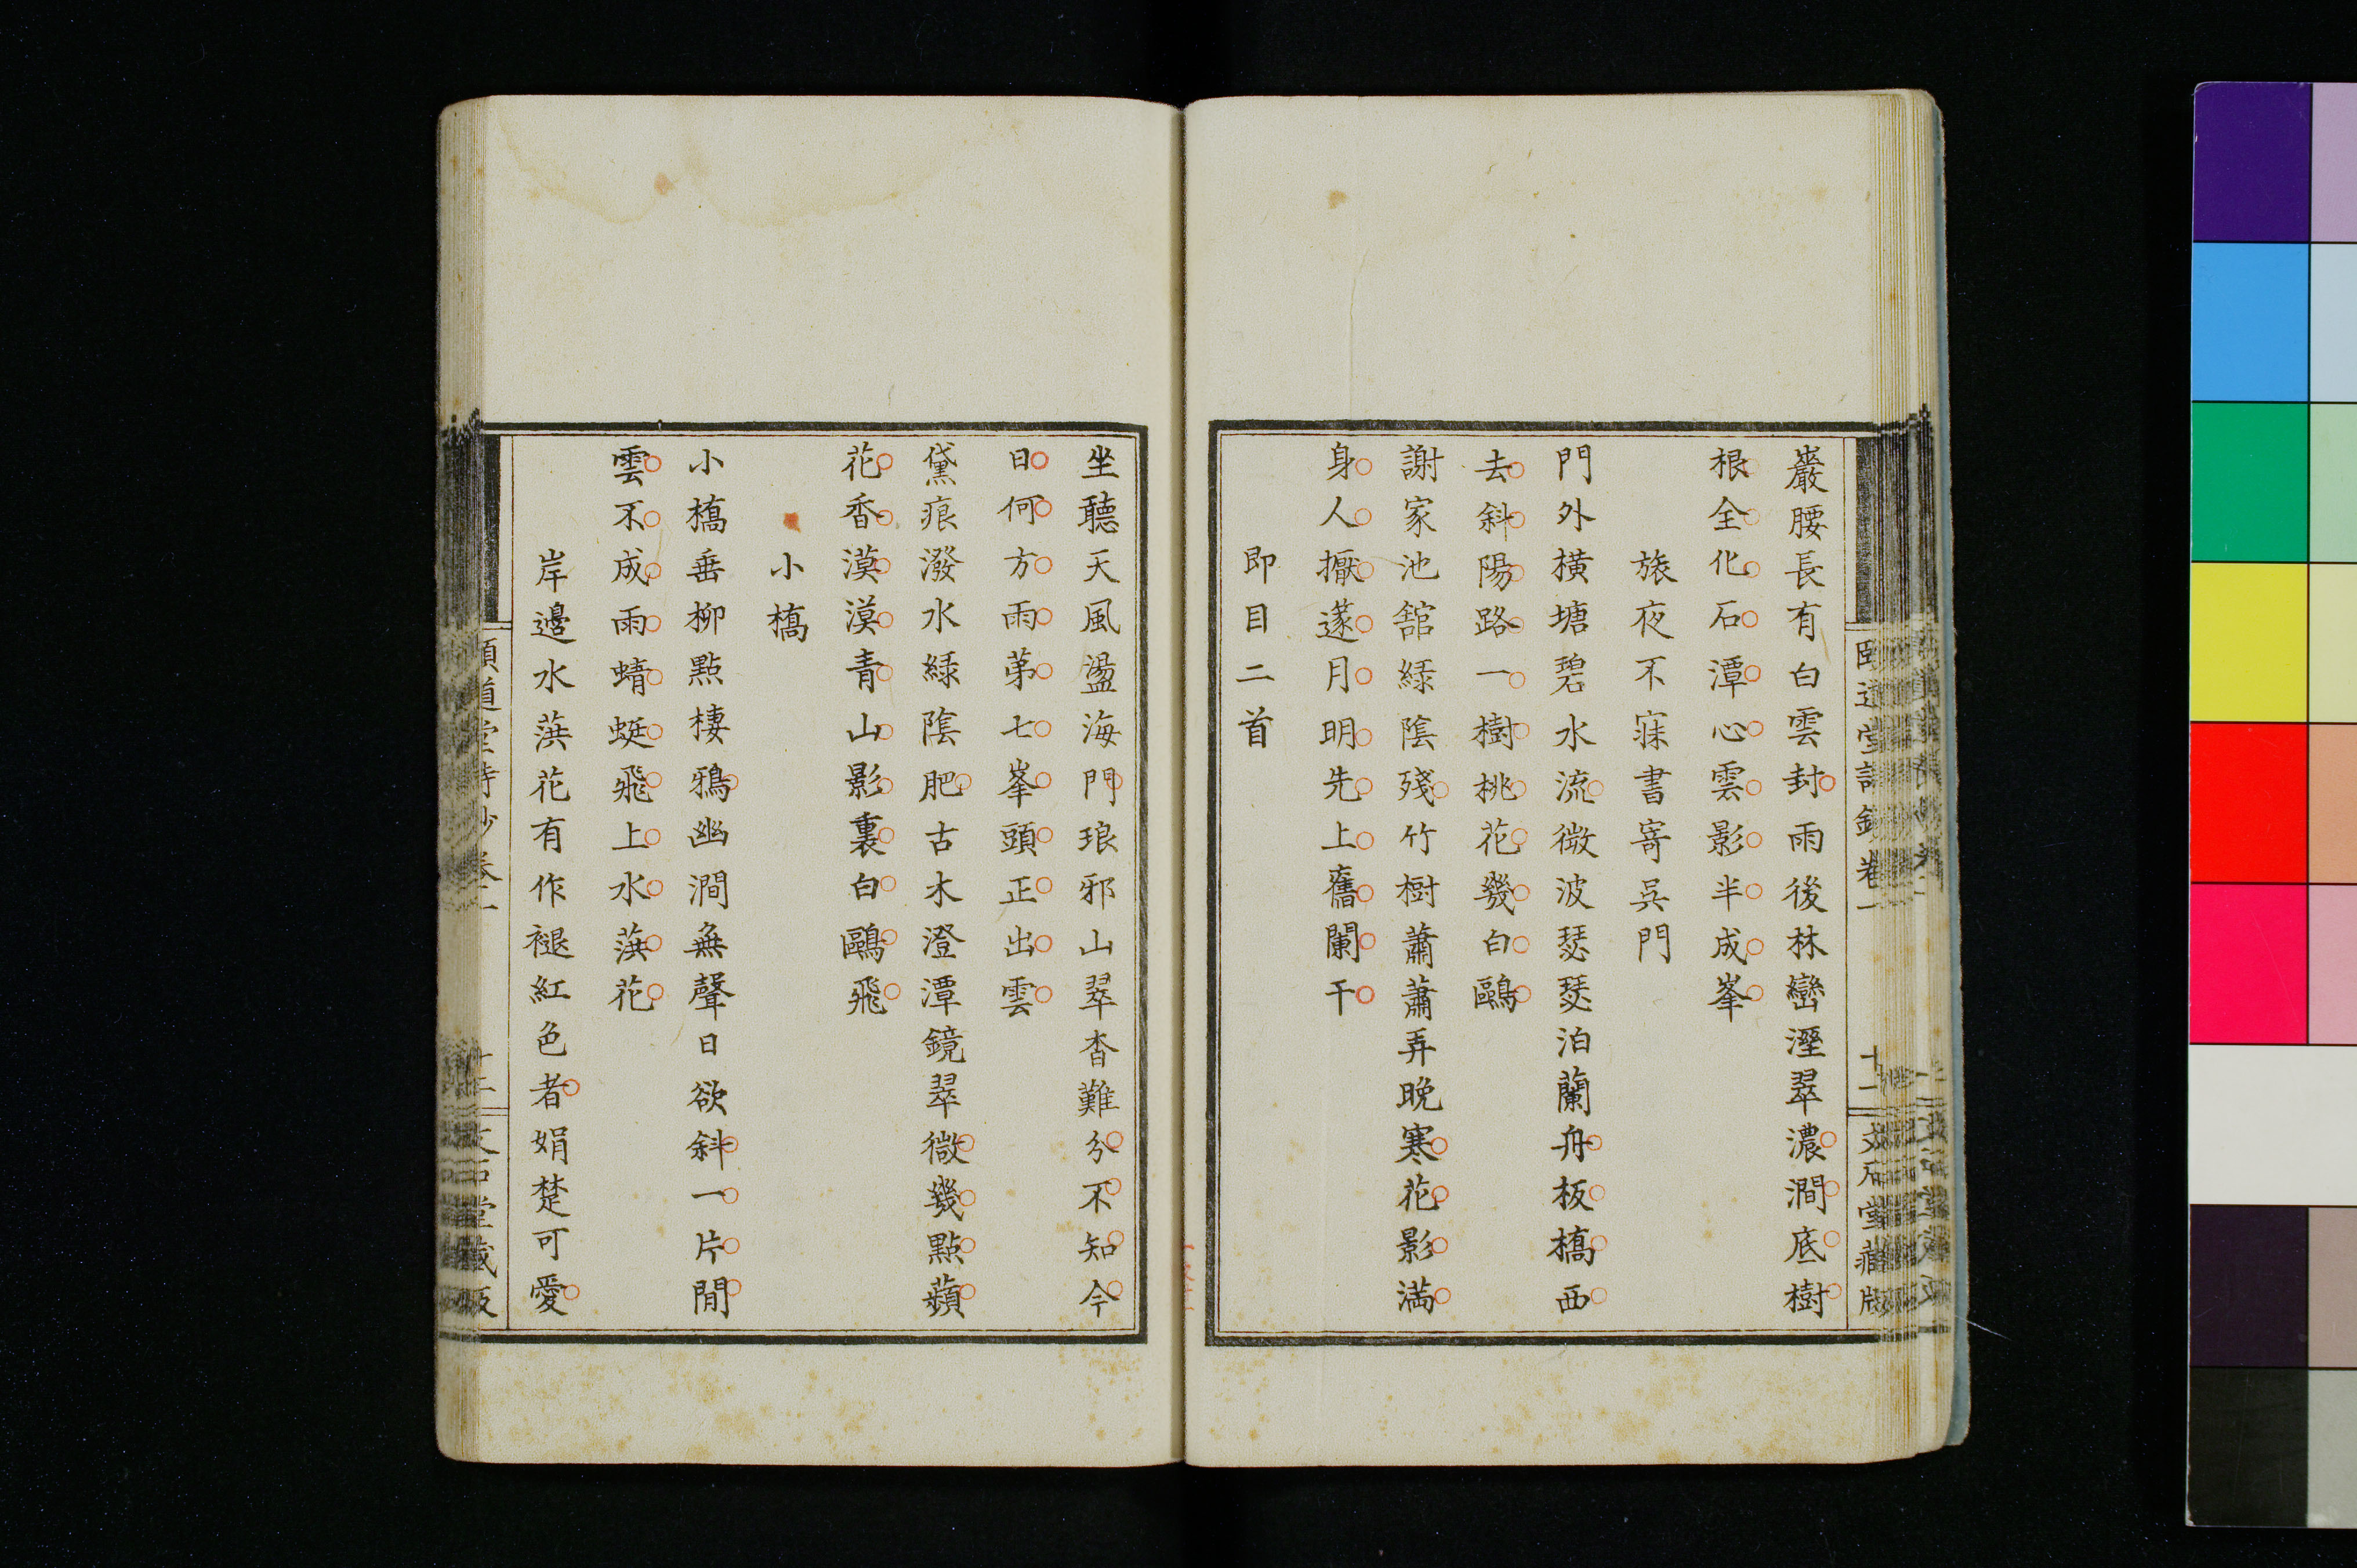 巖腰長有白雲封雨後林巒溼翠濃澗底樹
根全化石潭心雲影半成峯
旅夜不寐書寄吳門
門外橫塘碧水流微波瑟瑟泊蘭舟板橋西
去斜陽路一樹桃花幾白鷗
謝家池舘綠陰殘竹樹蕭蕭弄晚寒花影滿
身人擫遂月明先上舊闌干
即目二首
坐聽天風盪海門琅邪山翠杳難分不知今
日何方雨苐七峯頭正出雲
黛痕潑水綠陰肥古木澄潭鏡翠微幾點蘋
花香漠漠青山影裏白鷗飛
小橋
小橋垂柳點棲鴉幽澗無聲日欲斜一片閒
雲不成雨蜻蜓飛上水葓花
岸邊水葓花有作褪紅色者娟楚可愛
頤道堂詩鈔卷一
文石堂藏版